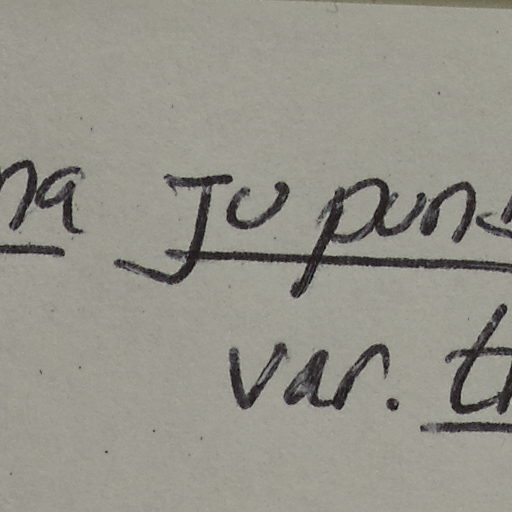 na Jupun
var. t